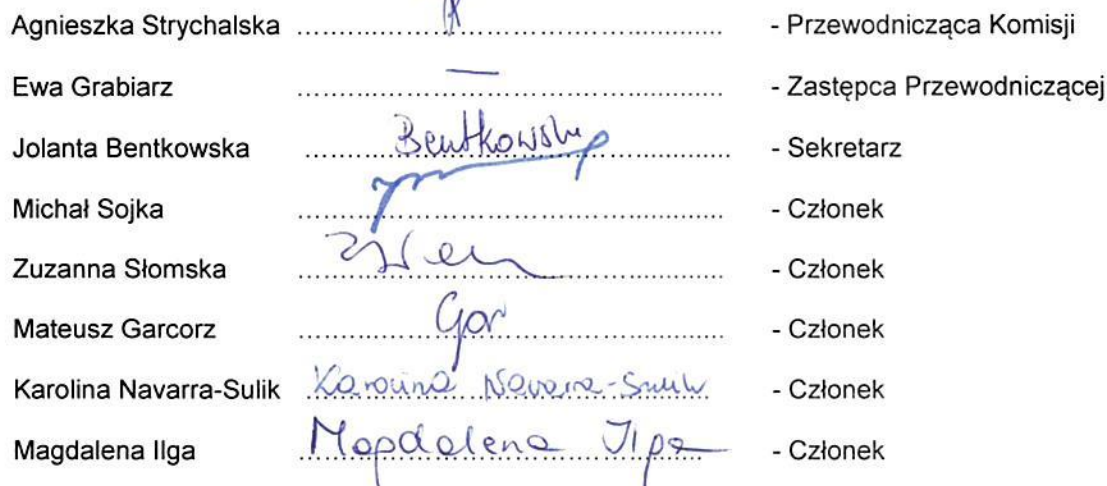 Agnieszka Strychalska ........................................ - Przewodnicząca Komisji
Ewa Grabiarz ........................................ - Zastępca Przewodniczącej
Jolanta Bentkowska ........................................ - Sekretarz
Michał Sojka ........................................ - Członek
Zuzanna Słomska ........................................ - Członek
Mateusz Garcorz Gar ........................................ - Członek
Karolina Navarra-Sulik Karolina Navarra-Sulik - Członek
Magdalena Ilga Magdalena Ilga - Członek